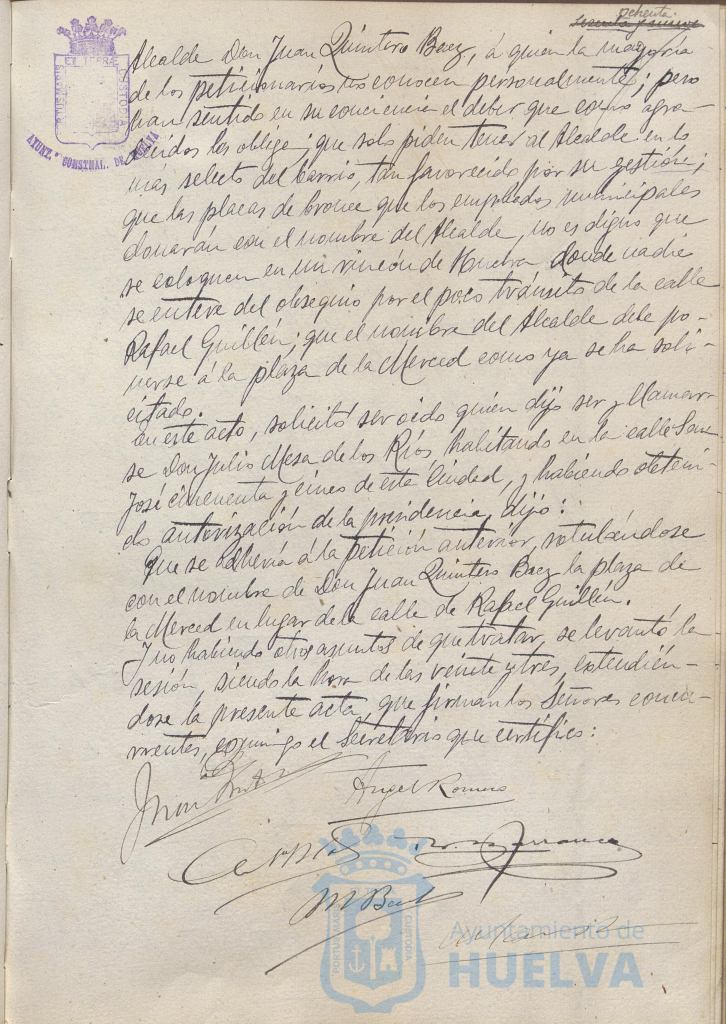 ochenta
sesenta y nueve
Alcalde Don Juan Quintero Baez, á quien la mayoria
de los peticionarios no conocen personalmente; pero
han sentido en su conciencia el deber que como agra-
decidos les obliga; que solo piden tener al Alcalde en lo
mas selecto del barrio, tan favorecido por su gestión;
que las placas de bronce que los empleados municipales
donarán con el nombre del Alcalde, no es digno que
se coloquen en un rincón de Huelva donde nadie
se entere del obsequio por el poco tránsito de la calle
Rafael Guillén; que el nombre del Alcalde debe po-
nerse á la plaza de la Merced como ya se ha soli-
citado.
En este acto, solicitó ser oido quien dijo ser y llamar-
se Don Julio Mesa de los Ríos, habitando en la calle San
José cincuenta y cinco de esta Ciudad, y habiendo obteni-
do autorización de la presidencia, dijo:
Que se adhería á la petición anterior, rotulándose
con el nombre de Don Juan Quintero Baez la plaza de
la Merced en lugar de la calle de Rafael Guillén.
Y no habiendo otros asuntos de que tratar, se levantó la
sesión, siendo la hora de las veinte y tres, extendién-
dose la presente acta, que firman los Señores concu-
rrentes, conmigo el Secretario que certifico:
Angel Romero
EX TERRAE CUSTODIA
AYUNT.º CONSTNAL. DE HUELVA
PORTUS MARIS CUSTODIA
Ayuntamiento de
HUELVA